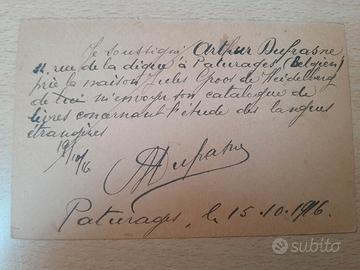 Je soussigné Arthur Dufrasne
11. rue de la digue à Paturages (Belgien)
prie la maison Jules Groos de Heidelberg
de m'envoyer son catalogue de
livres concernant l'étude des langues
étrangères
A Dufrasne
Paturages, le 15.10.1916.
subito